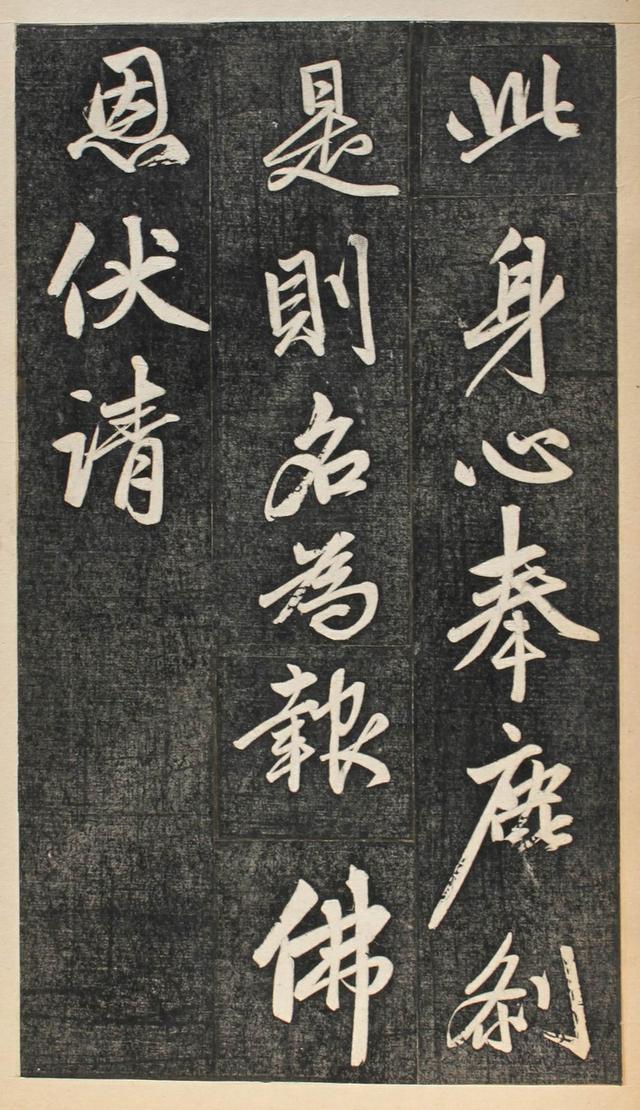 此身心奉塵刹
是則名為報佛
恩伏請